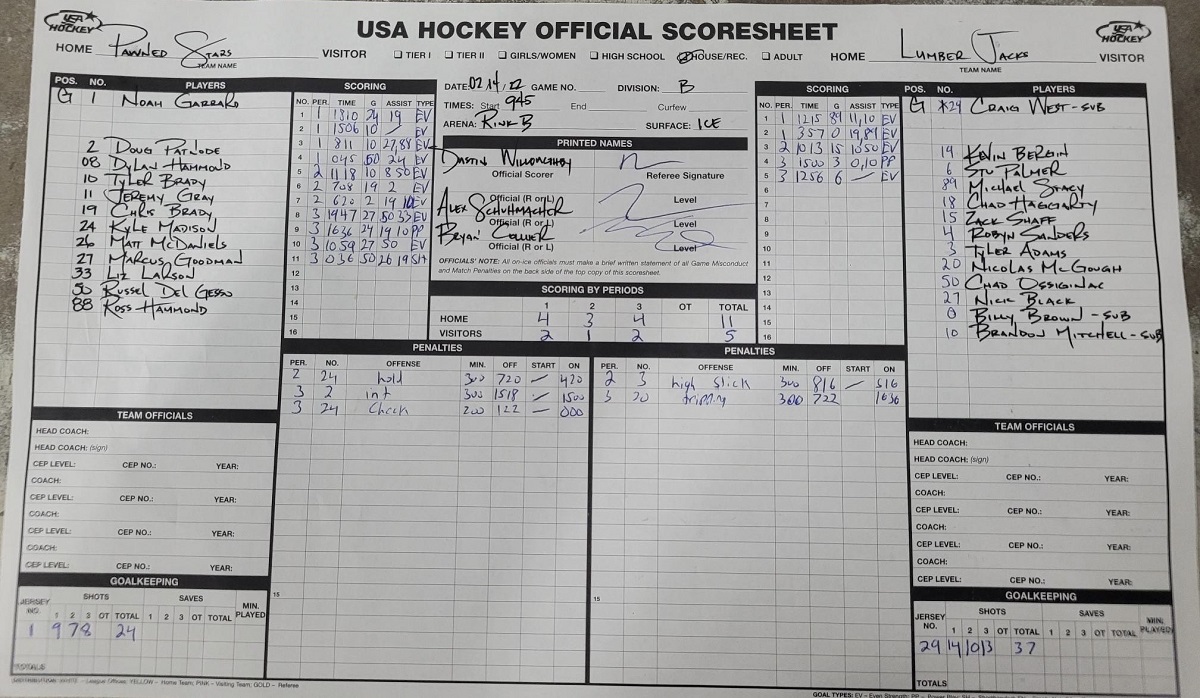 USA HOCKEY OFFICIAL SCORESHEET
USA HOCKEY
HOME Pawned Stars VISITOR
TEAM NAME
☐ TIER I ☐ TIER II ☐ GIRLS/WOMEN ☐ HIGH SCHOOL ☑ HOUSE/REC. ☐ ADULT
HOME Lumber Jacks VISITOR
TEAM NAME
USA HOCKEY
POS. NO. PLAYERS
G 1 Noah Garrard
2 Doug Patnode
08 Dylan Hammond
10 Tyler Brady
11 Jeremy Gray
19 Chris Brady
24 Kyle Madison
26 Matt McDaniels
27 Marcus Goodman
33 Liz Larson
50 Russel Del Gesso
88 Ross Hammond
SCORING
NO. PER. TIME G ASSIST TYPE
1 1 1810 24 19 EV
2 1 1506 10 / EV
3 1 811 10 27,88 EV
4 1 045 50 24 EV
5 2 1118 10 8 50 EV
6 2 708 19 2 EV
7 2 620 2 19 10 EV
8 3 1947 27 50 33 EV
9 3 1636 24 19 10 PP
10 3 1059 27 50 EV
11 3 036 50 26 19 SH
12
13
14
15
16
DATE: 02/14/22 GAME NO. DIVISION: B
TIMES: Start 945 End Curfew
ARENA: Rink B SURFACE: ICE
PRINTED NAMES
Dustin Willoughby
Official Scorer Referee Signature
Alex Schuhmacher
Official (R or L) Level
Official (R or L) Level
Bryan Collier
Official (R or L) Level
OFFICIALS' NOTE: All on-ice officials must make a brief written statement of all Game Misconduct
and Match Penalties on the back side of the top copy of this scoresheet.
SCORING BY PERIODS
1 2 3 OT TOTAL
HOME 4 3 4 11
VISITORS 2 1 2 5
SCORING
NO. PER. TIME G ASSIST TYPE
1 1 1215 89 11,10 EV
2 1 357 0 19,89 EV
3 2 1013 15 10 50 EV
4 3 1500 3 0,10 PP
5 3 1256 6 — EV
6
7
8
9
10
11
12
13
14
15
16
POS. NO. PLAYERS
G *29 Craig West - SUB
19 Kevin Bergin
6 Stu Palmer
89 Michael Stacy
18 Chad Haggarty
15 Zack Shaff
4 Robyn Sanders
3 Tyler Adams
20 Nicolas McGough
50 Chad Ossiginac
27 Nick Black
0 Billy Brown - SUB
10 Brandon Mitchell - SUB
PENALTIES
PER. NO. OFFENSE MIN. OFF START ON
2 24 hold 300 720 — 420
3 2 int 300 1518 — 1500
3 24 Check 200 122 — 000
15
PENALTIES
PER. NO. OFFENSE MIN. OFF START ON
2 3 high stick 300 816 — 516
3 20 tripping 300 722 1636
15
TEAM OFFICIALS
HEAD COACH:
HEAD COACH: (sign)
CEP LEVEL: CEP NO.: YEAR:
COACH:
CEP LEVEL: CEP NO.: YEAR:
COACH:
CEP LEVEL: CEP NO.: YEAR:
COACH:
CEP LEVEL: CEP NO.: YEAR:
GOALKEEPING
JERSEY NO. SHOTS SAVES MIN. PLAYED
1 2 3 OT TOTAL 1 2 3 OT TOTAL
1 9 7 8 24
TOTALS
TEAM OFFICIALS
HEAD COACH:
HEAD COACH: (sign)
CEP LEVEL: CEP NO.: YEAR:
COACH:
CEP LEVEL: CEP NO.: YEAR:
COACH:
CEP LEVEL: CEP NO.: YEAR:
COACH:
CEP LEVEL: CEP NO.: YEAR:
GOALKEEPING
JERSEY NO. SHOTS SAVES MIN. PLAYED
1 2 3 OT TOTAL 1 2 3 OT TOTAL
29 14 10 13 37
TOTALS
WHITE – League Offices; YELLOW – Home Team; PINK – Visiting Team; GOLD – Referee
GOAL TYPES: EV – Even Strength; PP –